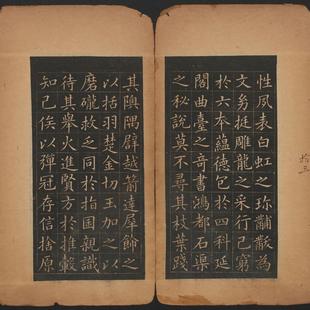 性夙表白虹之珎黼黻為
文㓜挺雕龍之采行己窮
於六本蘊德包於四科延
閣曲臺之奇書鴻都石渠
之秘說莫不尋其枝葉踐
其隩隅譬越箭達犀飾之
以括羽楚金切玉加之以
磨礲救乏同於指囷親識
待其舉火進賢方於推轂
知己俟以彈冠存信捨原
拾三